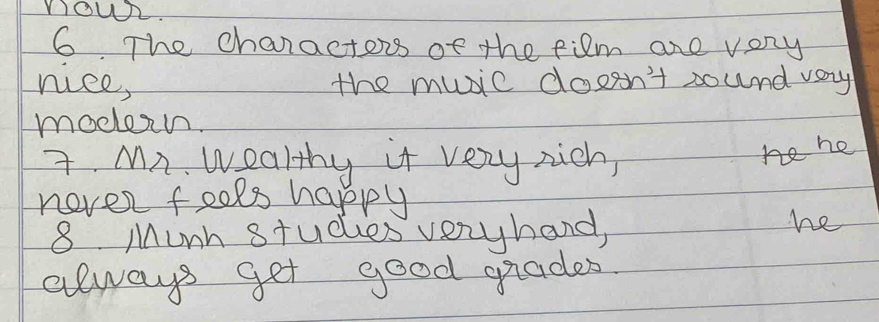 hour.
6. The characters of the film are very
nice, the music doesn't sound very
modern.
7. Mr. Wealthy it very rich, he he
never feels happy
8. Minh studies very hard, he
always get good grades.